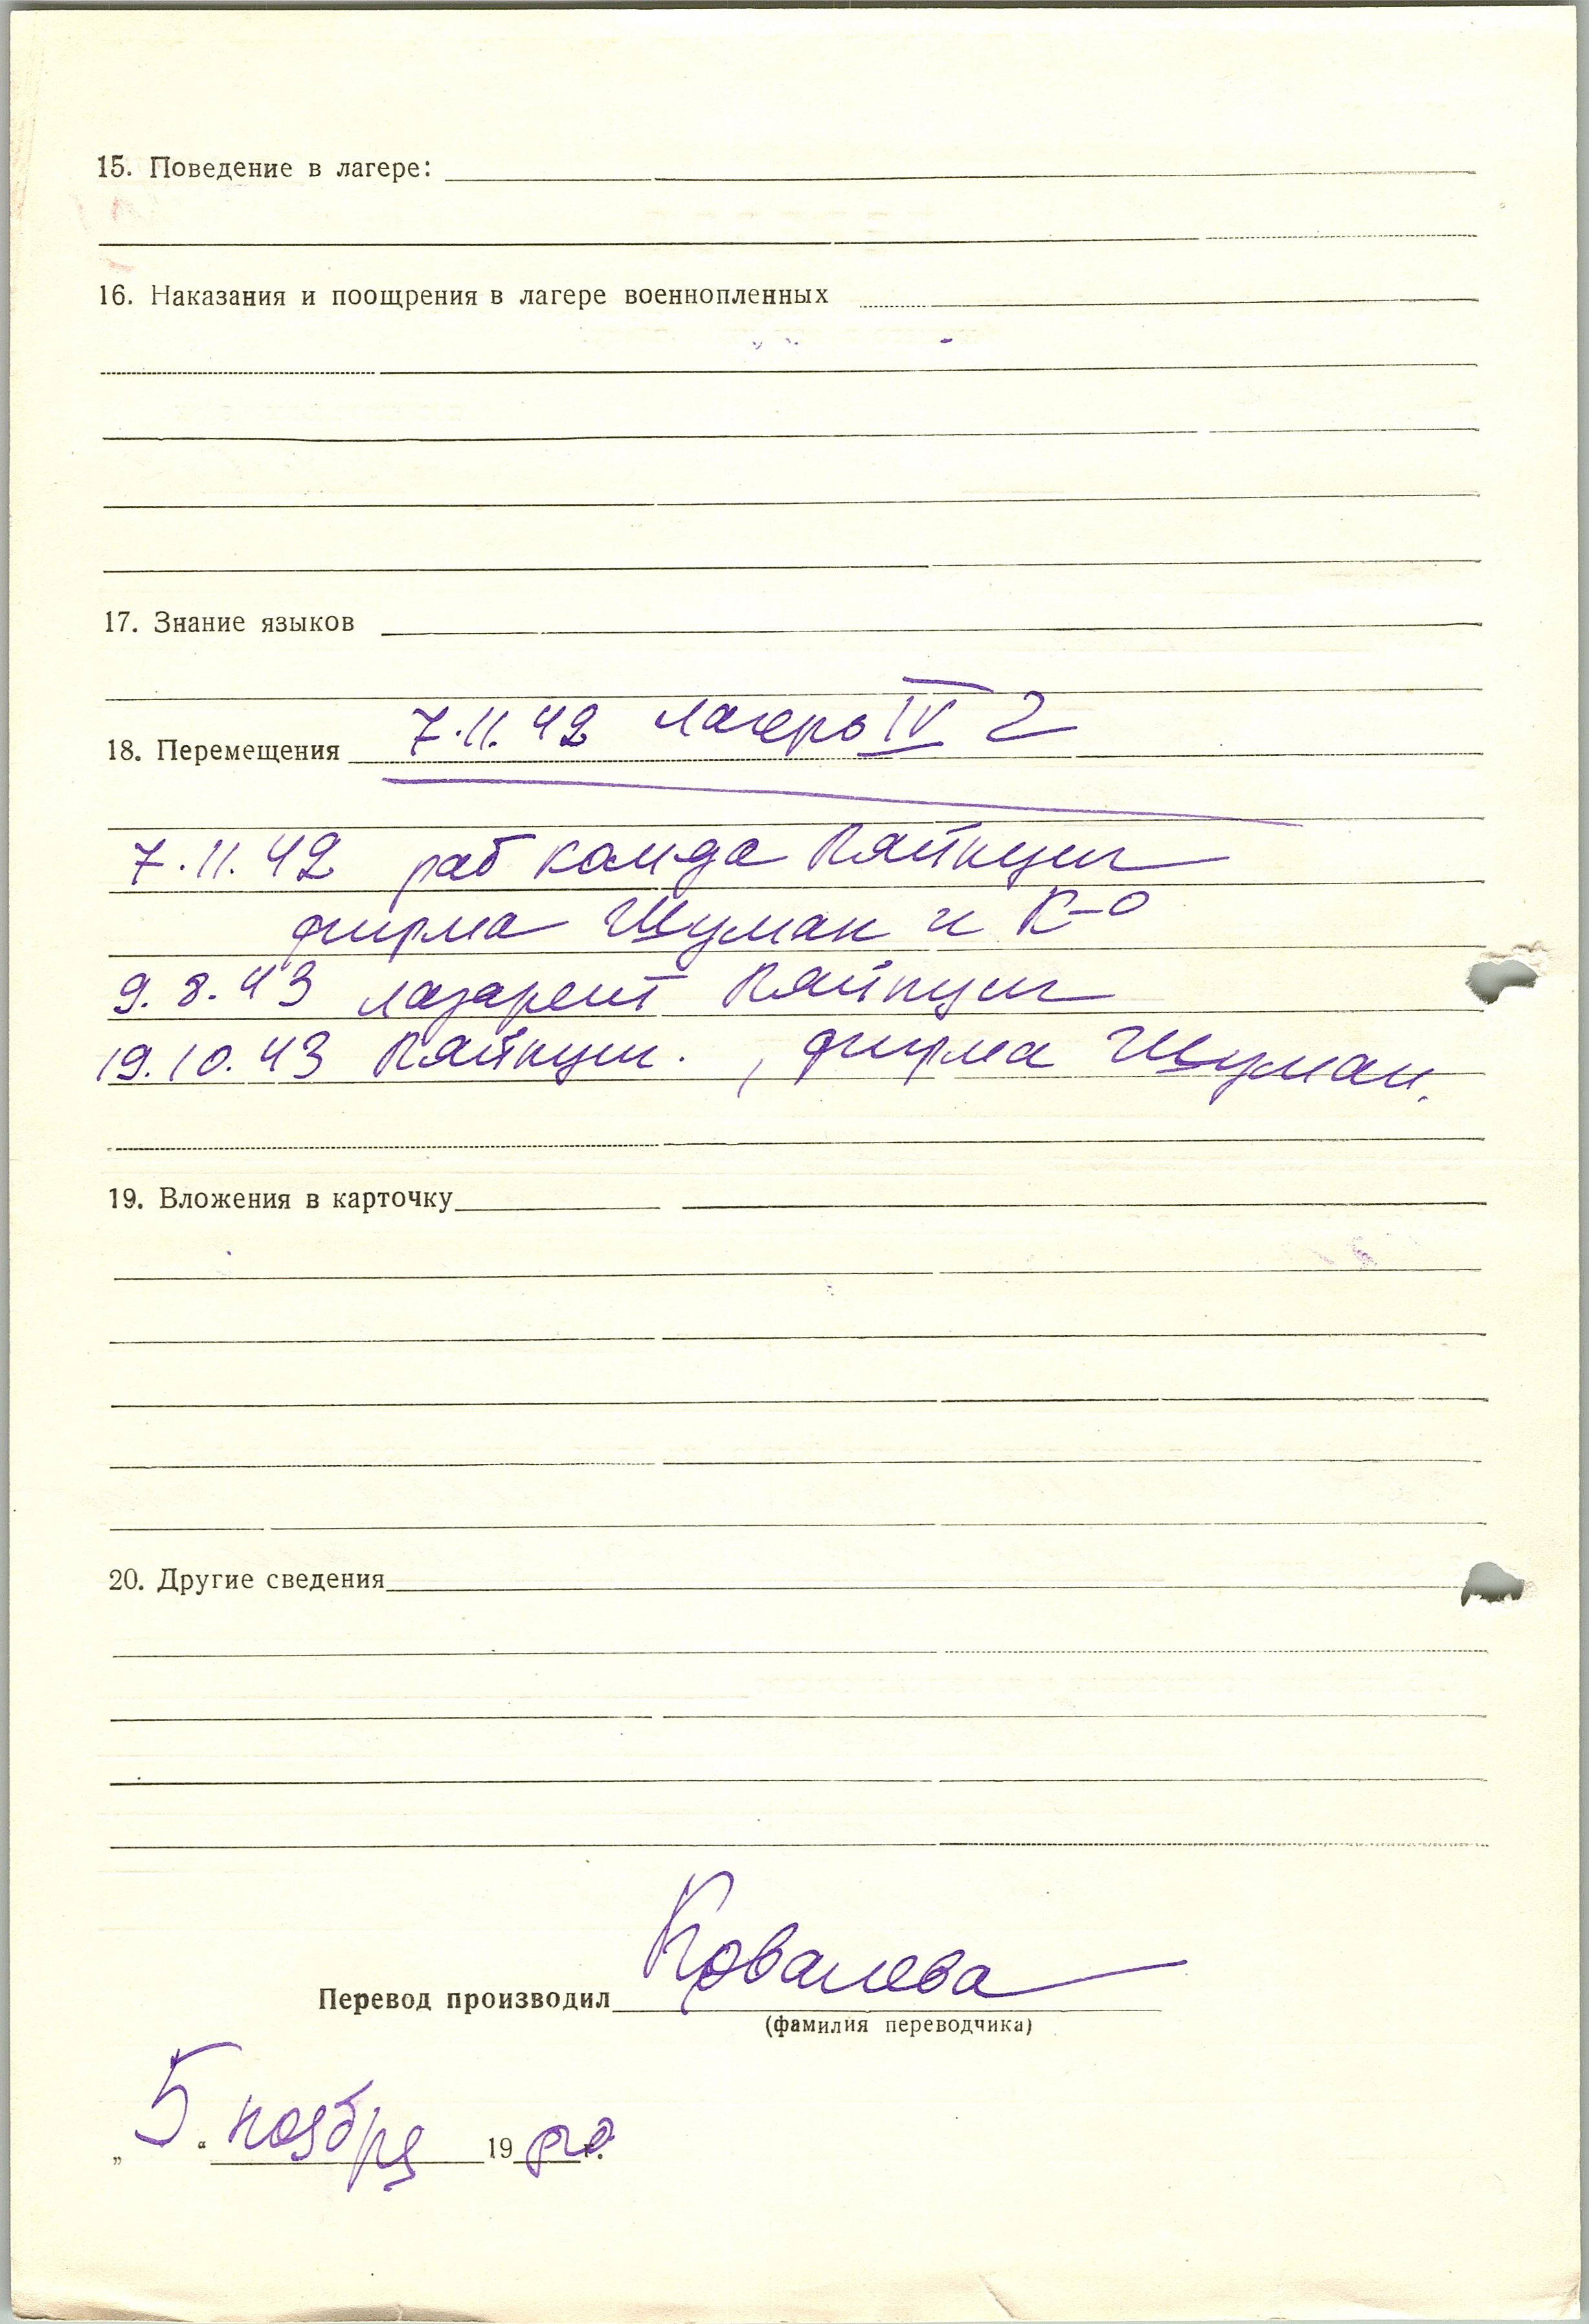 15. Поведение в лагере:
16. Наказания и поощрения в лагере военнопленных
17. Знание языков
18. Перемещения 7.11.42 лагерь IV Г
7.11.42 раб комда Ляйпциг
фирма Шуман и К-о
9.8.43 лазарет Ляйпциг
19.10.43 Ляйпциг. , фирма Шуман.
19. Вложения в карточку
20. Другие сведения
Перевод производил Ковалева
(фамилия переводчика)
„5“ ноября 19 г.